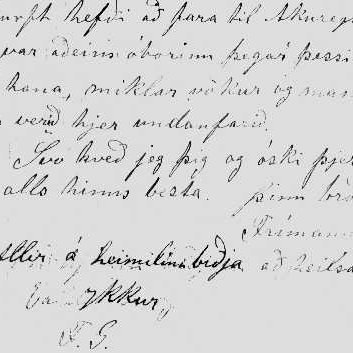 þurft hefði að fara til Akureyr
var aðeins óborinn þegar þessi
hana, miklar vökur og man
verið hjer undanfarið.
Svo kveð jeg þig og óski þjer
alls hins besta. þinn bró
Frímann
allir á heimilinu biðja að heilsa
ykkur
F. G.